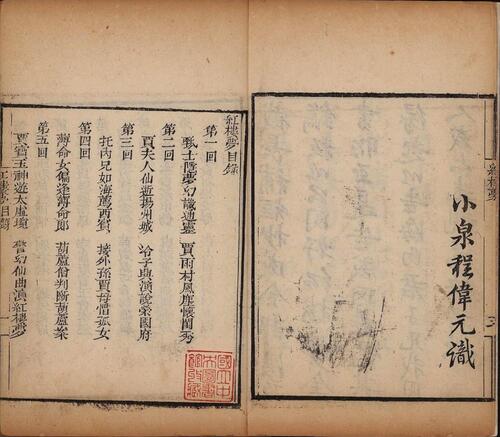 紅樓夢
小泉程偉元識
紅樓夢目錄
第一回
甄士隱夢幻識通靈　賈雨村風塵懷閨秀
第二回
賈夫人仙逝揚州城　冷子興演說榮國府
第三回
托內兄如海薦西賓　接外孫賈母惜孤女
第四回
薄命女偏逢薄命郎　葫蘆僧判斷葫蘆案
第五回
賈寶玉神遊太虛境　警幻仙曲演紅樓夢
紅樓夢目錄
國立中
央圖書
館收藏